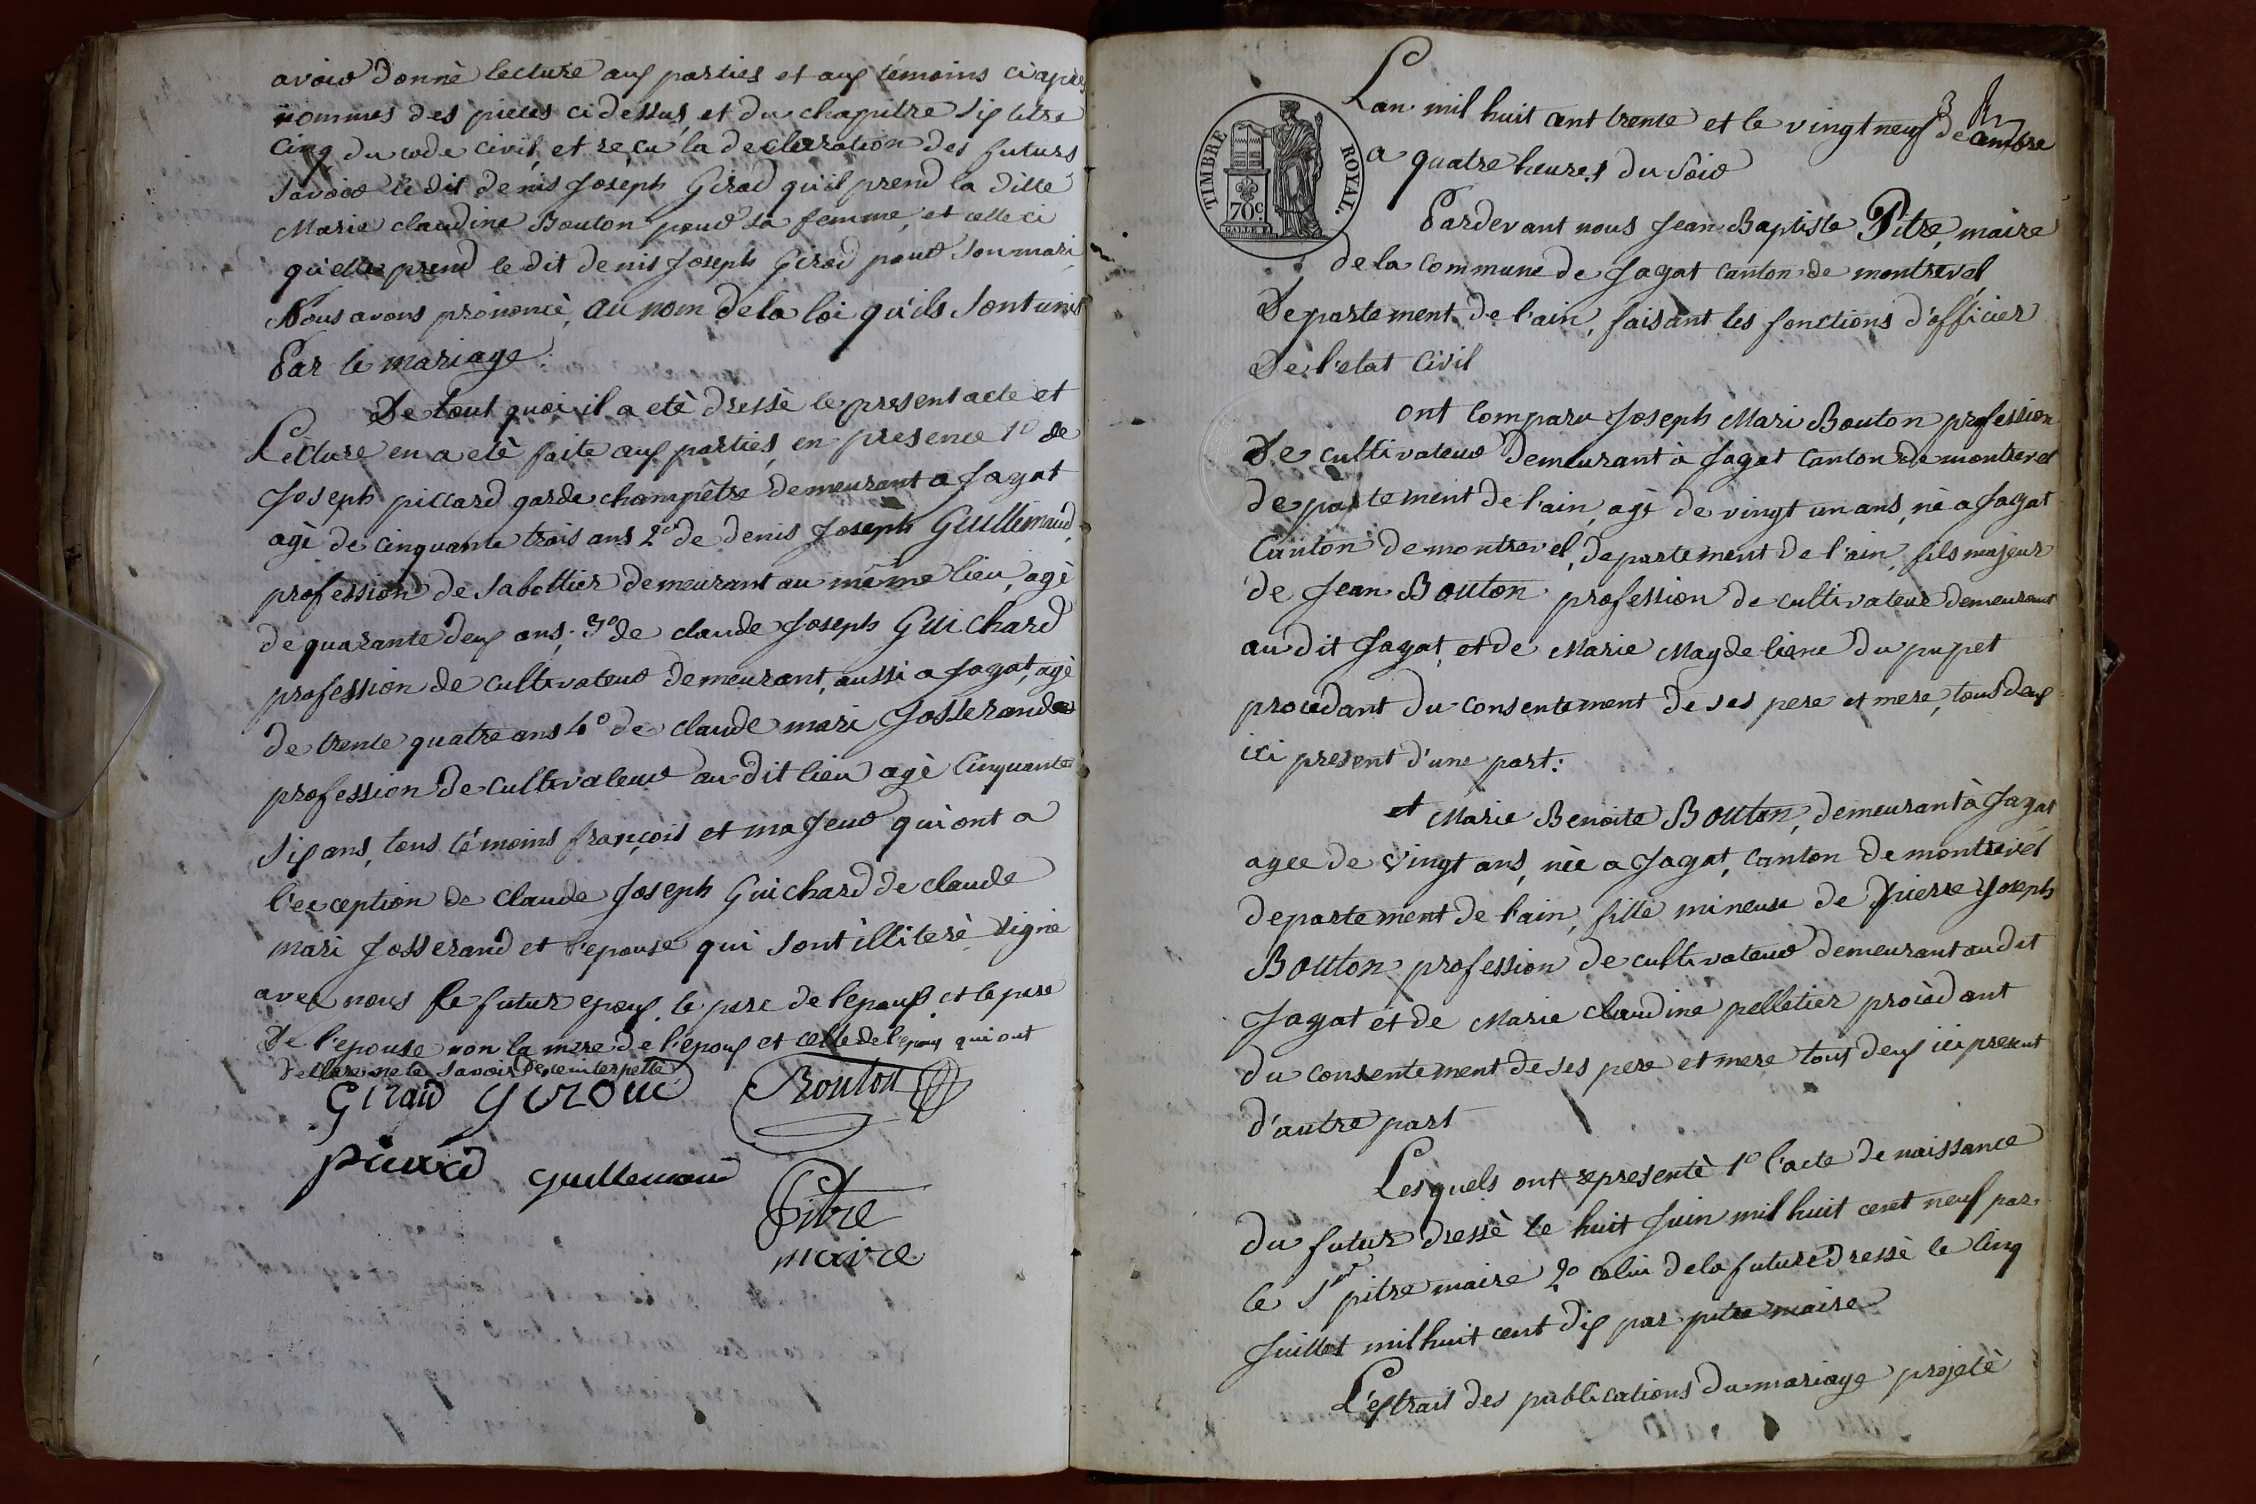 avoir donnè lecture aux parties et aux témoins ci après
nommés des pieces ci dessus, et du chapitre six titre
Cinq du code civil, et reçu la déclarration des futurs
savoir le dit denis Joseph Girod qu'il prend la ditte
Marie claudine Bouton pour sa femme, et celle ci
qu'elle prend le dit denis Joseph Girod pour son mari
Nous avons prononcè, au nom de la loi qu'ils sont unis
Par le mariage.
De tout quoi il a etè dressè le present acte et
Lecture en a etè faite aux parties, en presence 1º de
Joseph piccard garde champêtre demeurant a Jayat
agè de cinquante trois ans 2º de denis Joseph Guillemaud,
profession de sabottier demeurant au même lieu, agè
de quarante deux ans; 3º de claude Joseph Guichard
profession de cultivateur demeurant, aussi a Jayat, agè
de trente quatre ans 4º de claude mari Josserand
profession de cultivateur au dit lieu agè Cinquante
six ans, tous témoins françois et majeur qui ont a
l'exception de claude Joseph Guichard de claude
mari Josserand et l'epouse qui sont illiterè signé
avec nous le futur epoux, le pere de l'epoux et le pere
De l'epouse non la mere de l'epoux et celle de l'epoux qui ont
declaré ne le savoir de ce interpellé
Giraud Giroud Bouton
Picard Guillemaud
Pitre
maire
TIMBRE ROYAL.
70c
Lan mil huit cent trente et le vingt neuf decembre
a quatre heures du Soir
Pardevant nous Jean Baptiste Pitre, maire
de la Commune de Jayat Canton de montrevel
Departement de l'ain, faisant les fonctions d'officier
De l'etat Civil
ont Comparu Joseph Mari Bouton profession
De cultivateur Demeurant à Jayat Canton de montrevel
departement de l'ain, agè de vingt un ans, nè a Jayat
Canton de montrevel, departement de l'ain, fils majeur
de Jean Bouton profession de cultivateur demeurant
au dit Jayat, et de Marie Magdeliene Du pupet
procedant du consentement de ses pere et mere, tous deux
ici present d'une part:
et Marie Benoite Bouton, demeurant à Jayat
agee de vingt ans, nèe a Jayat, Canton de montrevel
departement de l'ain, fille mineuse de Pierre Joseph
Bouton profession de cultivateur demeurant audit
Jayat et de Marie claudine pelletier procèdant
du consentement de ses pere et mere tous deux ici present
d'autre part
Lesquels ont representè 1º l'acte de naissance
du futur dressè le huit Juin mil huit cent neuf par
le Sr pitre maire 2º celui de la future dressè le Cinq
Juillet mil huit cent dix par pitre maire
L'extrait des publications du mariage projetè